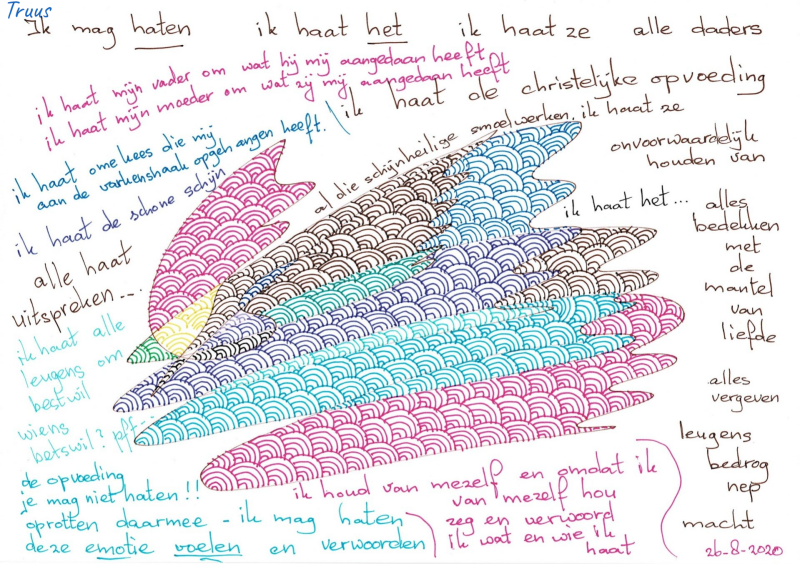 Truus
Ik mag haten ik haat het ik haat ze alle daders
ik haat mijn vader om wat hij mij aangedaan heeft
ik haat mijn moeder om wat zij mij aangedaan heeft
ik haat de christelijke opvoeding
ik haat ome kees die mij
aan de varkenshaak opgehangen heeft.
al die schijnheilige smoelwerken, ik haat ze
onvoorwaardelijk
houden van
ik haat de schone schijn
ik haat het...
alles
bedekken
met
de
mantel
van
liefde
alle haat
uitspreken...
ik haat alle
leugens om
bestwil
wiens
betswil? pff-
alles
vergeven
leugens
bedrog
nep
macht
de opvoeding
je mag niet haten!!
oprotten daarmee - ik mag haten
deze emotie voelen en verwoorden
ik houd van mezelf en omdat ik
van mezelf hou
zeg en verwoord
ik wat en wie ik
haat
26-8-2020